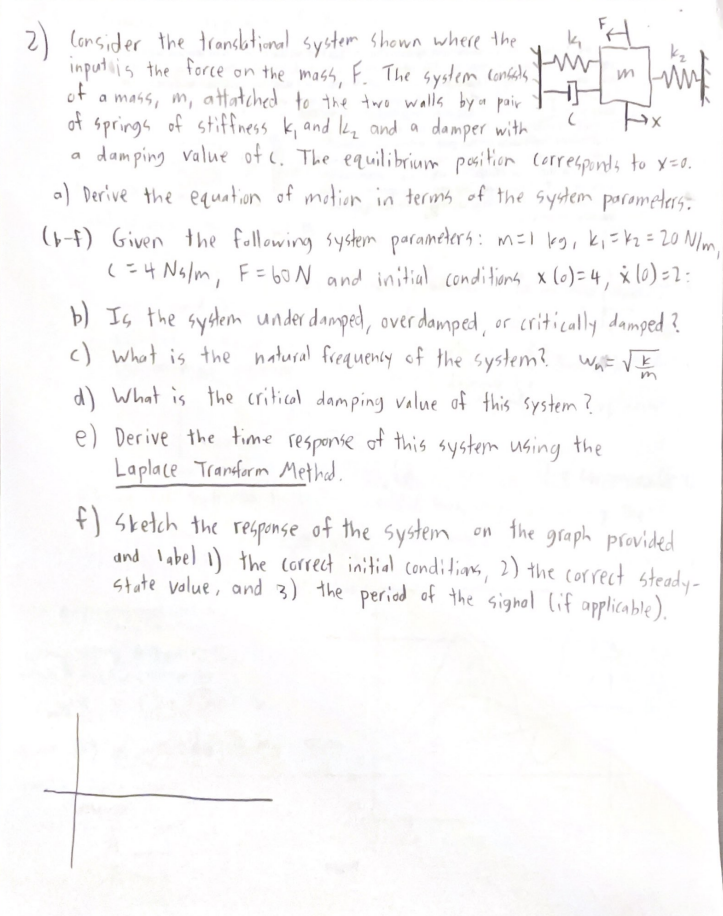 2) Consider the translational system shown where the
input is the force on the mass, F. The system consists
of a mass, m, attatched to the two walls by a pair
of springs of stiffness k₁ and k₂ and a damper with
a damping value of c. The equilibrium position corresponds to x=0.
F
k₁
k₂
m
c
x
a) Derive the equation of motion in terms of the system parameters.
(b-f) Given the following system parameters: m=1 kg, k₁=k₂=20 N/m,
c=4 Ns/m, F=60N and initial conditions x(0)=4, ẋ(0)=2:
b) Is the system underdamped, overdamped, or critically damped?
c) What is the natural frequency of the system? Wn=√k/m
d) What is the critical damping value of this system?
e) Derive the time response of this system using the
Laplace Transform Method.
f) Sketch the response of the system on the graph provided
and label 1) the correct initial conditions, 2) the correct steady-
state value, and 3) the period of the signal (if applicable).